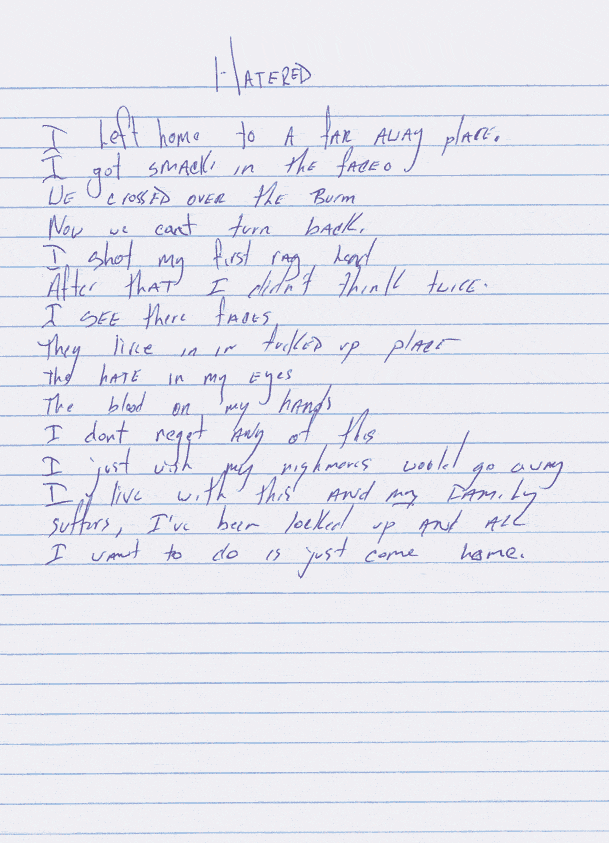 HATERED
I Left home to A fAR AWAY plACE.
I got SMACK, in the fACEO
WE CROSSED OVER the Burm
Now we cant turn bACK.
I shot my first rag head
After thAT I didn't think twice.
I SEE there fACES,
They live in in fucKED up plACE
The hATE in my EyES
The blood on my hANds
I dont reget ANy of this
I just wish my nighmeres would go away
I live with this AND my FAMiLy
suffers, I've been locked up ANd ALL
I wANt to do is just come home.